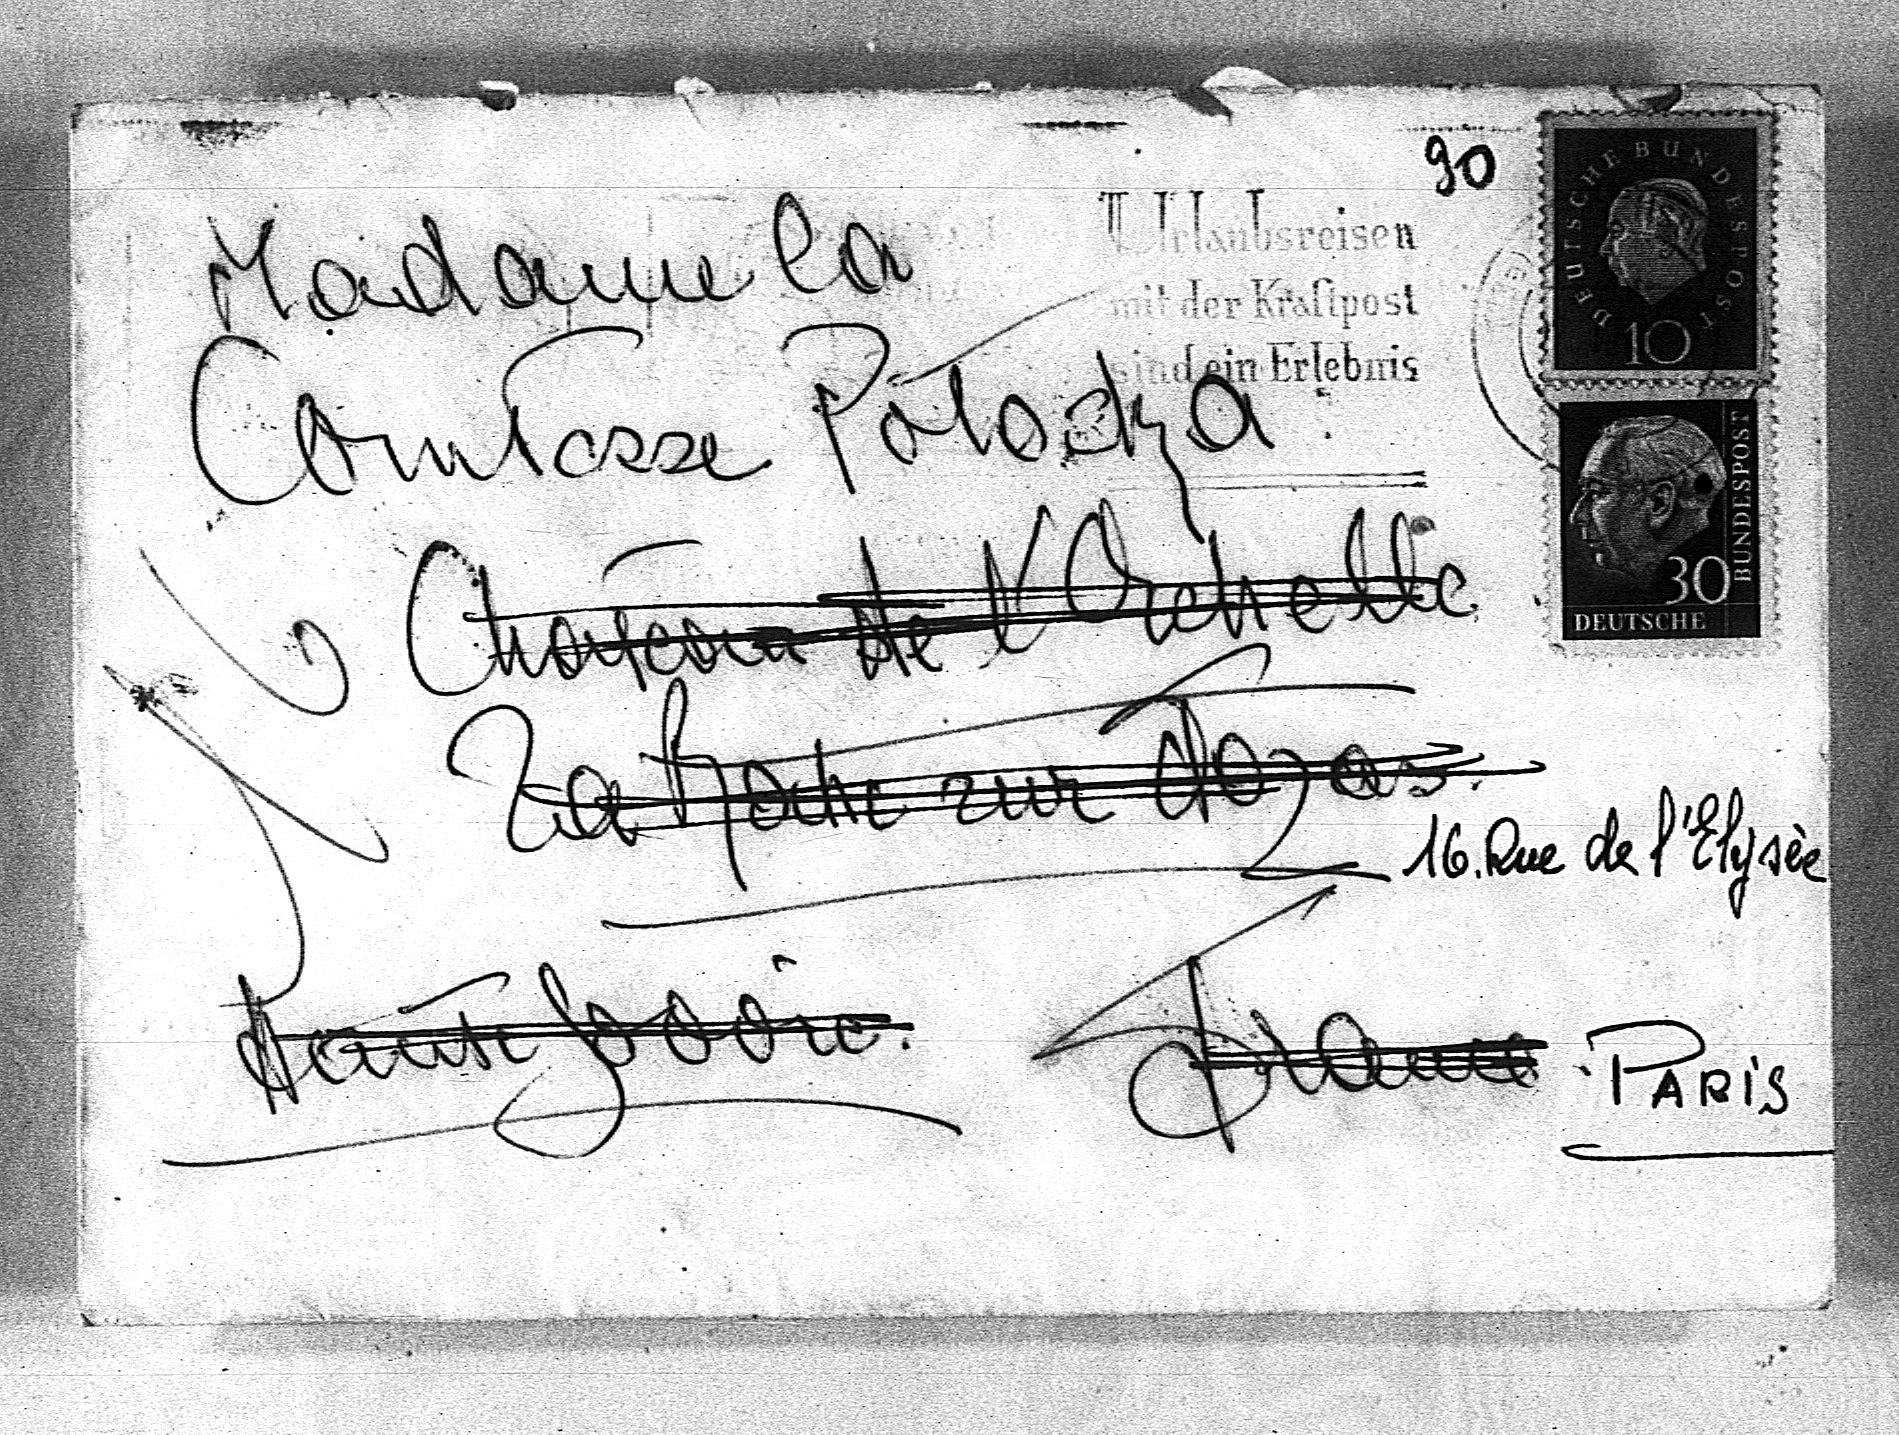 90
DEUTSCHE BUNDESPOST
10
Urlaubsreisen
mit der Kraftpost
sind ein Erlebnis
Madame la
Comtesse Potocka
30
DEUTSCHE
BUNDESPOST
Chateau de l'Orchelle
La Roche sur
16. Rue de l'Elysèe
Haute Savoie.
France
PARIS